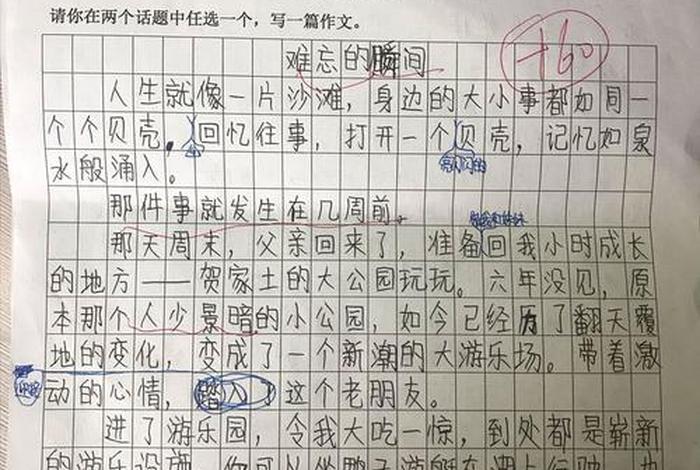 请你在两个话题中任选一个，写一篇作文。
难忘的瞬间
+60
人生就像一片沙滩，身边的大小事都如同一
个个贝壳，回忆往事，打开一个贝壳，记忆如泉
亮闪闪的
水般涌入。
那件事就发生在几周前。
那天周末，父亲回来了，准备回我小时成长
的地方——贺家土的大公园玩玩。六年没见，原
本那个人少景暗的小公园，如今已经历了翻天覆
地的变化，变成了一个新潮的大游乐场。带着激
动的心情，踏入了这个老朋友。
进了游乐园，令我大吃一惊，到处都是崭新
的游乐设施